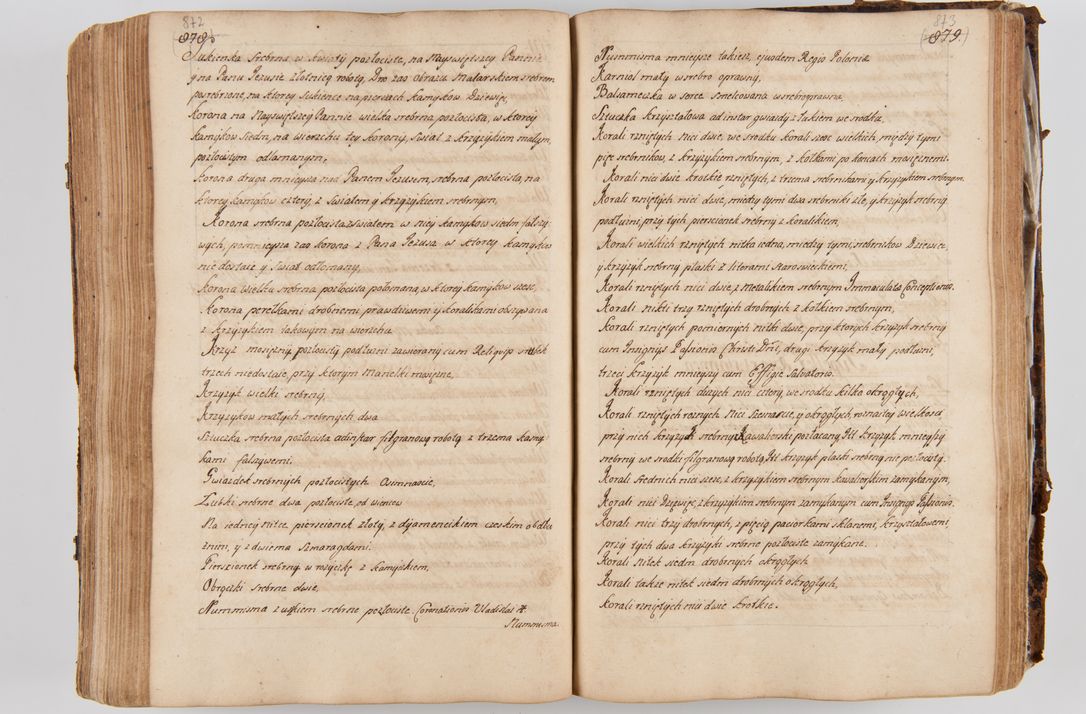 872
878.
Sukienka srebrna w kwiaty pozłociste, na Nayswiętszey Pannie
y na Panu Jezusie złotnicą robotą, Dno zaś obrazu Malarskiem srebrem
posrebrzone, na ktorey sukience na piersiach kamykow Dziewięć,
Korona na Nayswiętszey Pannie wielka srebrna pozłocista, w ktorey
kamykow siedm, na wierzchu tey korony, swiat z krzyżykiem małym,
pozłocistym odłamanym,
Korona druga mnieysza nad Panem Jezusem, srebrna pozłocista, na
ktorey kamykow cztery z swiatem y krzyżykiem srebrnym,
Korona srebrna pozłocista z swiatem w niey kamykow siedm fałszy-
wych, pomnieysza zaś korona z Pana Jezusa w ktorey kamykow
nie dostaie y swiat odłomany,
Korona wielka srebrna pozłocista połomana, w ktorey kamykow szesc,
Korona perełkami drobnemi prawdziwemi y koralikami obszywana
z krzyżykiem takowym na wierzchu
Krzyż mosiężny pozłocisty podłużny zawierany cum Reliquijs srubek
trzech niedostaie, przy ktorym manelki mosiężne,
Krzyżyk wielki srebrny,
Krzyżykow małych srebrnych dwa
Sztuczka srebrna pozłocista ad instar filgranową robotą z trzema kamy-
kami fałszywemi.
Gwiazdek srebrnych pozłocistych Osmnascie,
Ząbki srebrne dwa pozłociste, od wiencow
Na iedney nitce pierscionek złoty, z dijamencikiem czeskim obdłu-
żnim, y z dwiema szmaragdami.
Pierscionek srebrny w rożyczkę z kamyczkiem,
Obrączki srebrne dwie,
Nummisma z uszkiem srebrne pozłociste Coronationis Vladislai
Nummisma
873
879.
Nummisma mnieysze takiesz, ejusdem Regis Poloniæ
Karniol mały w srebro oprawny,
Balsameczka w serce smelcowana w srebro oprawna,
Sztuczka kryształowa ad instar gwiazdy z łakiem we srodku,
Korali rzniętych nici dwie, we srodku korali szesc wielkich, między tymi
pięc srebrnikow, z krzyżykiem srebrnym, z kołkami po koncach mosiężnemi.
Korali nici dwie krotkie rzniętych, z trzema srebrnikami y krzyżykiem srebrnym.
Korali rzniętych nici dwie, między tymi dwa srebrniki złe, y krzyżyk srebrny
podłużni, przy tych pierscionek srebrny z koralikiem,
Korali wielkich rzniętych nitka iedna, między tymi, srebrnikow Dziewięc,
y krzyżyk srebrny płaski z literami staroswieckiemi,
Korali rzniętych nici dwie, z Metalikiem srebrnym Immaculatæ Conceptionis.
Korali nitki trzy rzniętych drobnych z kołkiem srebrnym,
Korali rzniętych pomiernych nitki dwie, przy ktorych krzyżyk srebrny
cum Insignijs Passionis Christi Dñi, drugi krzyżyk mały podłużni,
trzeci krzyżyk mnieyszy cum Effigie Salvatoris.
Korali rzniętych dużych nici cztery, we srodku kilka okrągłych,
Korali rzniętych rożnych nici szesnascie, y okrągłych, rożnaitey wielkosci
przy nich krzyżyk srebrny Kawalerski pozłacany, krzyżyk mnieyszy
srebrny we srodku filgranową robotą, krzyżyk płaski srebrny nie pozłocisty.
Korali srednich nici szesc, z krzyżykiem srebrnym kawalierskim zamykanym,
Korali nici Dziewięc, z krzyżykiem srebrnym zamykanym cum Insignijs Passionis.
Korali nici trzy drobnych, z pięcią paciorkami szklanemi, kryształowemi
przy tych dwa krzyżyki srebrne pozłociste zamykane.
Korali nitek siedm drobnych okrągłych
Korali także nitek siedm drobnych okrągłych,
Korali rzniętych nici dwie krotkie.